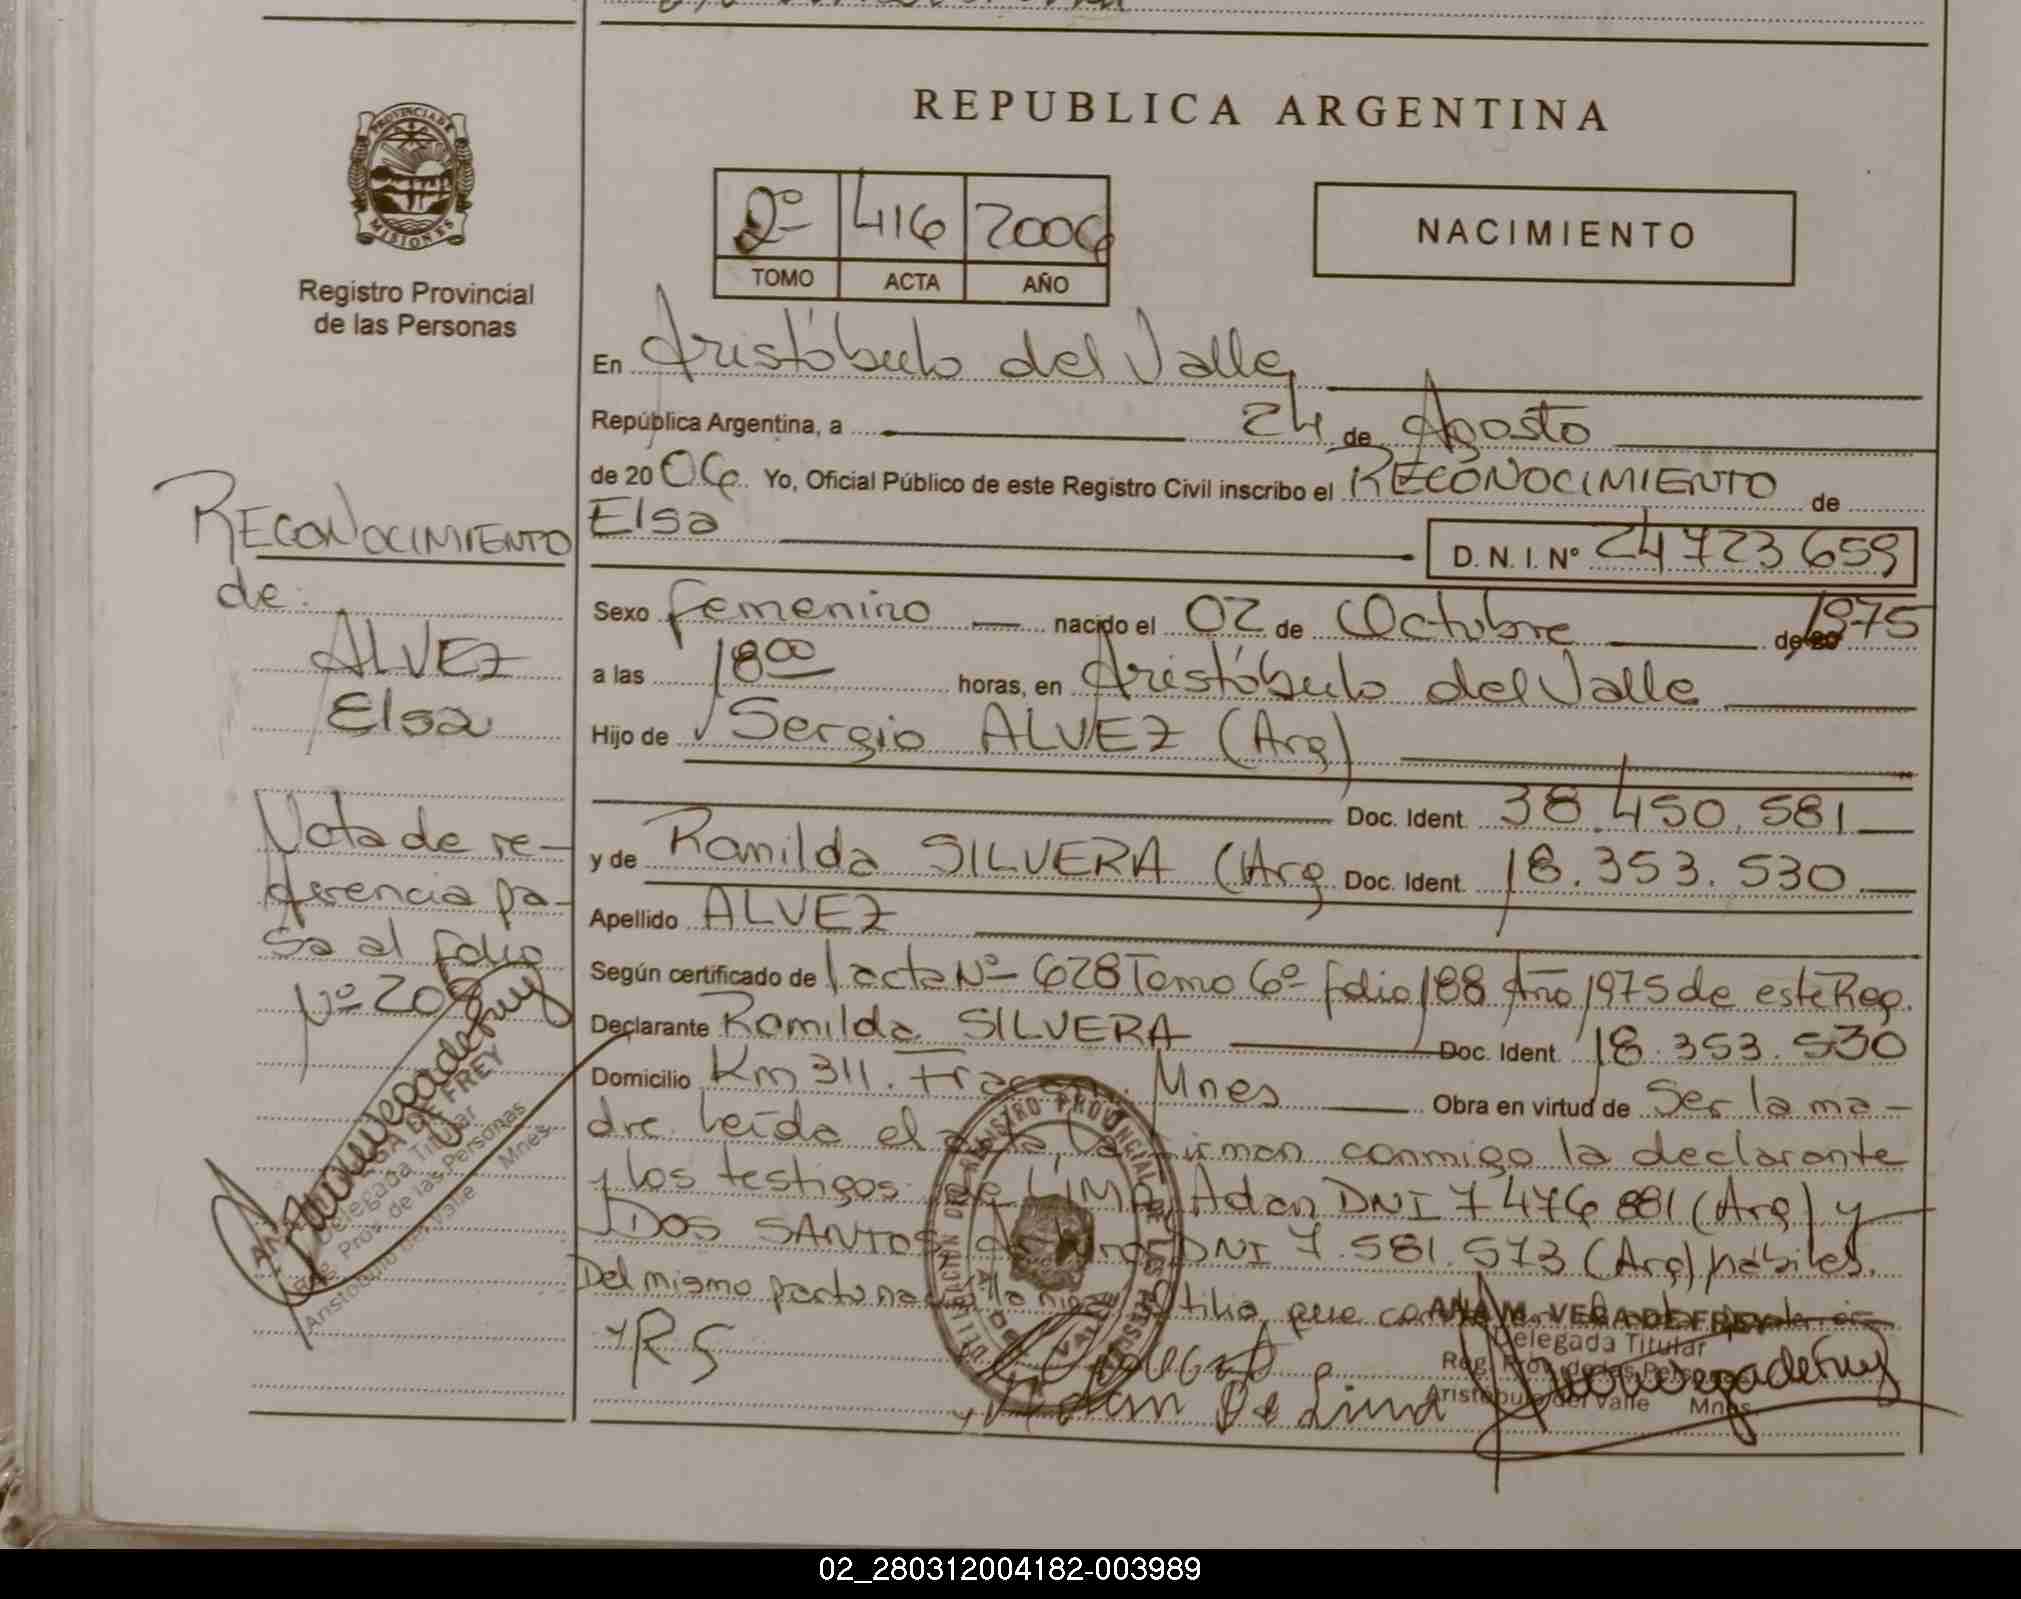 REPUBLICA ARGENTINA
PROVINCIA DE MISIONES
Registro Provincial
de las Personas
2º 416 2006
TOMO ACTA AÑO
NACIMIENTO
En Aristóbulo del Valle
República Argentina, a 24 de Agosto
de 2006 Yo, Oficial Público de este Registro Civil inscribo el RECONOCIMIENTO de
Elsa D.N.I. Nº 24723659
Sexo femenino nacido el 02 de Octubre de 20 1975
a las 18 00 horas, en Aristóbulo del Valle
Hijo de Sergio ALVEZ (Arg)
Doc. Ident. 38.450.581
y de Romilda SILVERA (Arg Doc. Ident. 18.353.530
Apellido ALVEZ
Según certificado de 1 acta Nº 628 Tomo 6º folio 188 Año 1975 de este Reg.
Declarante Romilda SILVERA Doc. Ident. 18.353.530
Domicilio Km 311. Mnes Obra en virtud de Ser la ma-
dre. Leída el acta, la firman conmigo la declarante
y los testigos LIMA, Adan DNI 7476881 (Arg) y
DOS SANTOS, DNI 7.581.573 (Arg) hábiles.
Del mismo parto la niña que
RS
Adan De Lima
ANA M. VEGA DE FREY
Delegada Titular
Reg. Prov. de las Personas
Aristóbulo del Valle Mnes.
RECONOCIMIENTO
de:
ALVEZ
Elsa
Nota de re-
ferencia pa-
sa al folio
Nº
DE FREY
Delegada Titular
Reg. Prov. de las Personas
Aristóbulo del Valle Mnes.
02_280312004182-003989